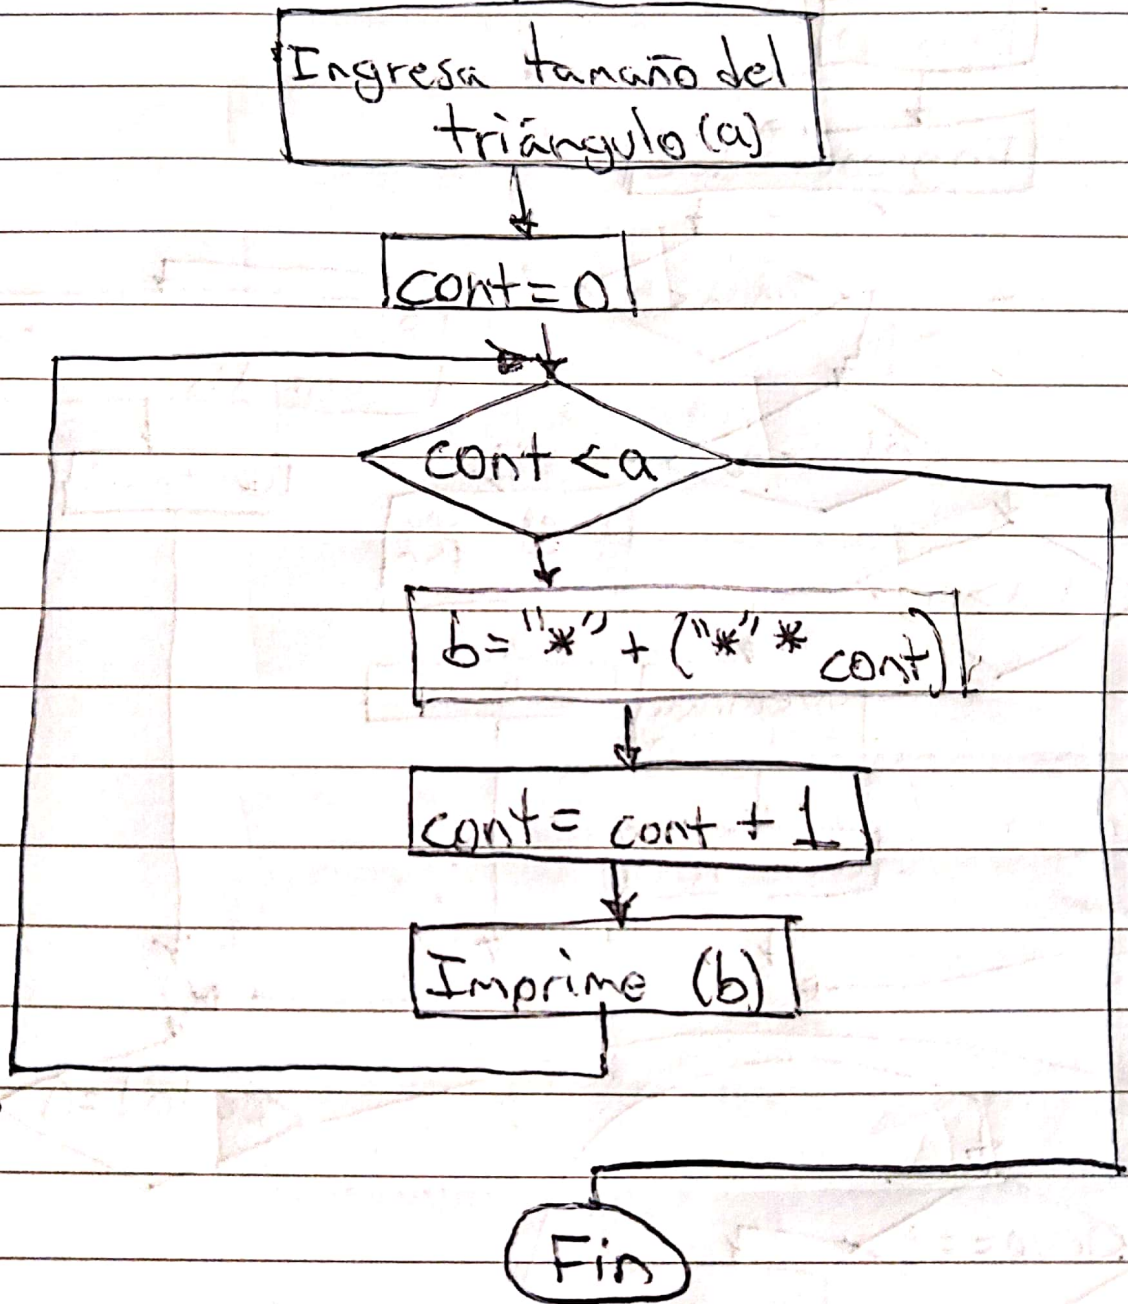 Ingresa tamaño del
triángulo (a)
cont = 0
cont < a
b = "*" + ("*" * cont)
cont = cont + 1
Imprime (b)
Fin